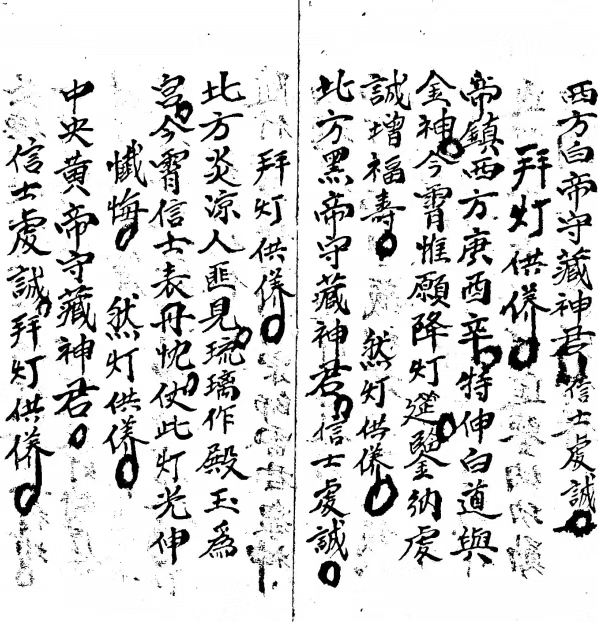 西方白帝守藏神君信士虔誠
拜灯供養
帝鎮西方庚酉辛特伸白道與
金神今霄惟願降灯筵鑒納虔
誠增福壽　然灯供養
北方黑帝守藏神君信士虔誠
拜灯供養
北方炎凉人匪見琉璃作殿玉為
宫今霄信士表丹忱使此灯光伸
懺悔　然灯供養
中央黃帝守藏神君
信士虔誠拜灯供養